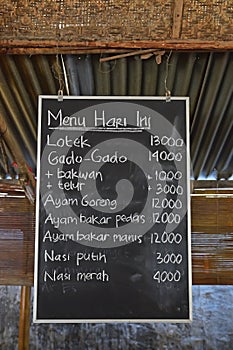 Menu Hari Ini
Lotek 13000
Gado-Gado 14000
+ bakwan + 1000
+ telur + 3000
Ayam Goreng 12.000
Ayam bakar pedas 12.000
Ayam bakar manis 12.000
Nasi putih 3000
Nasi merah 4000